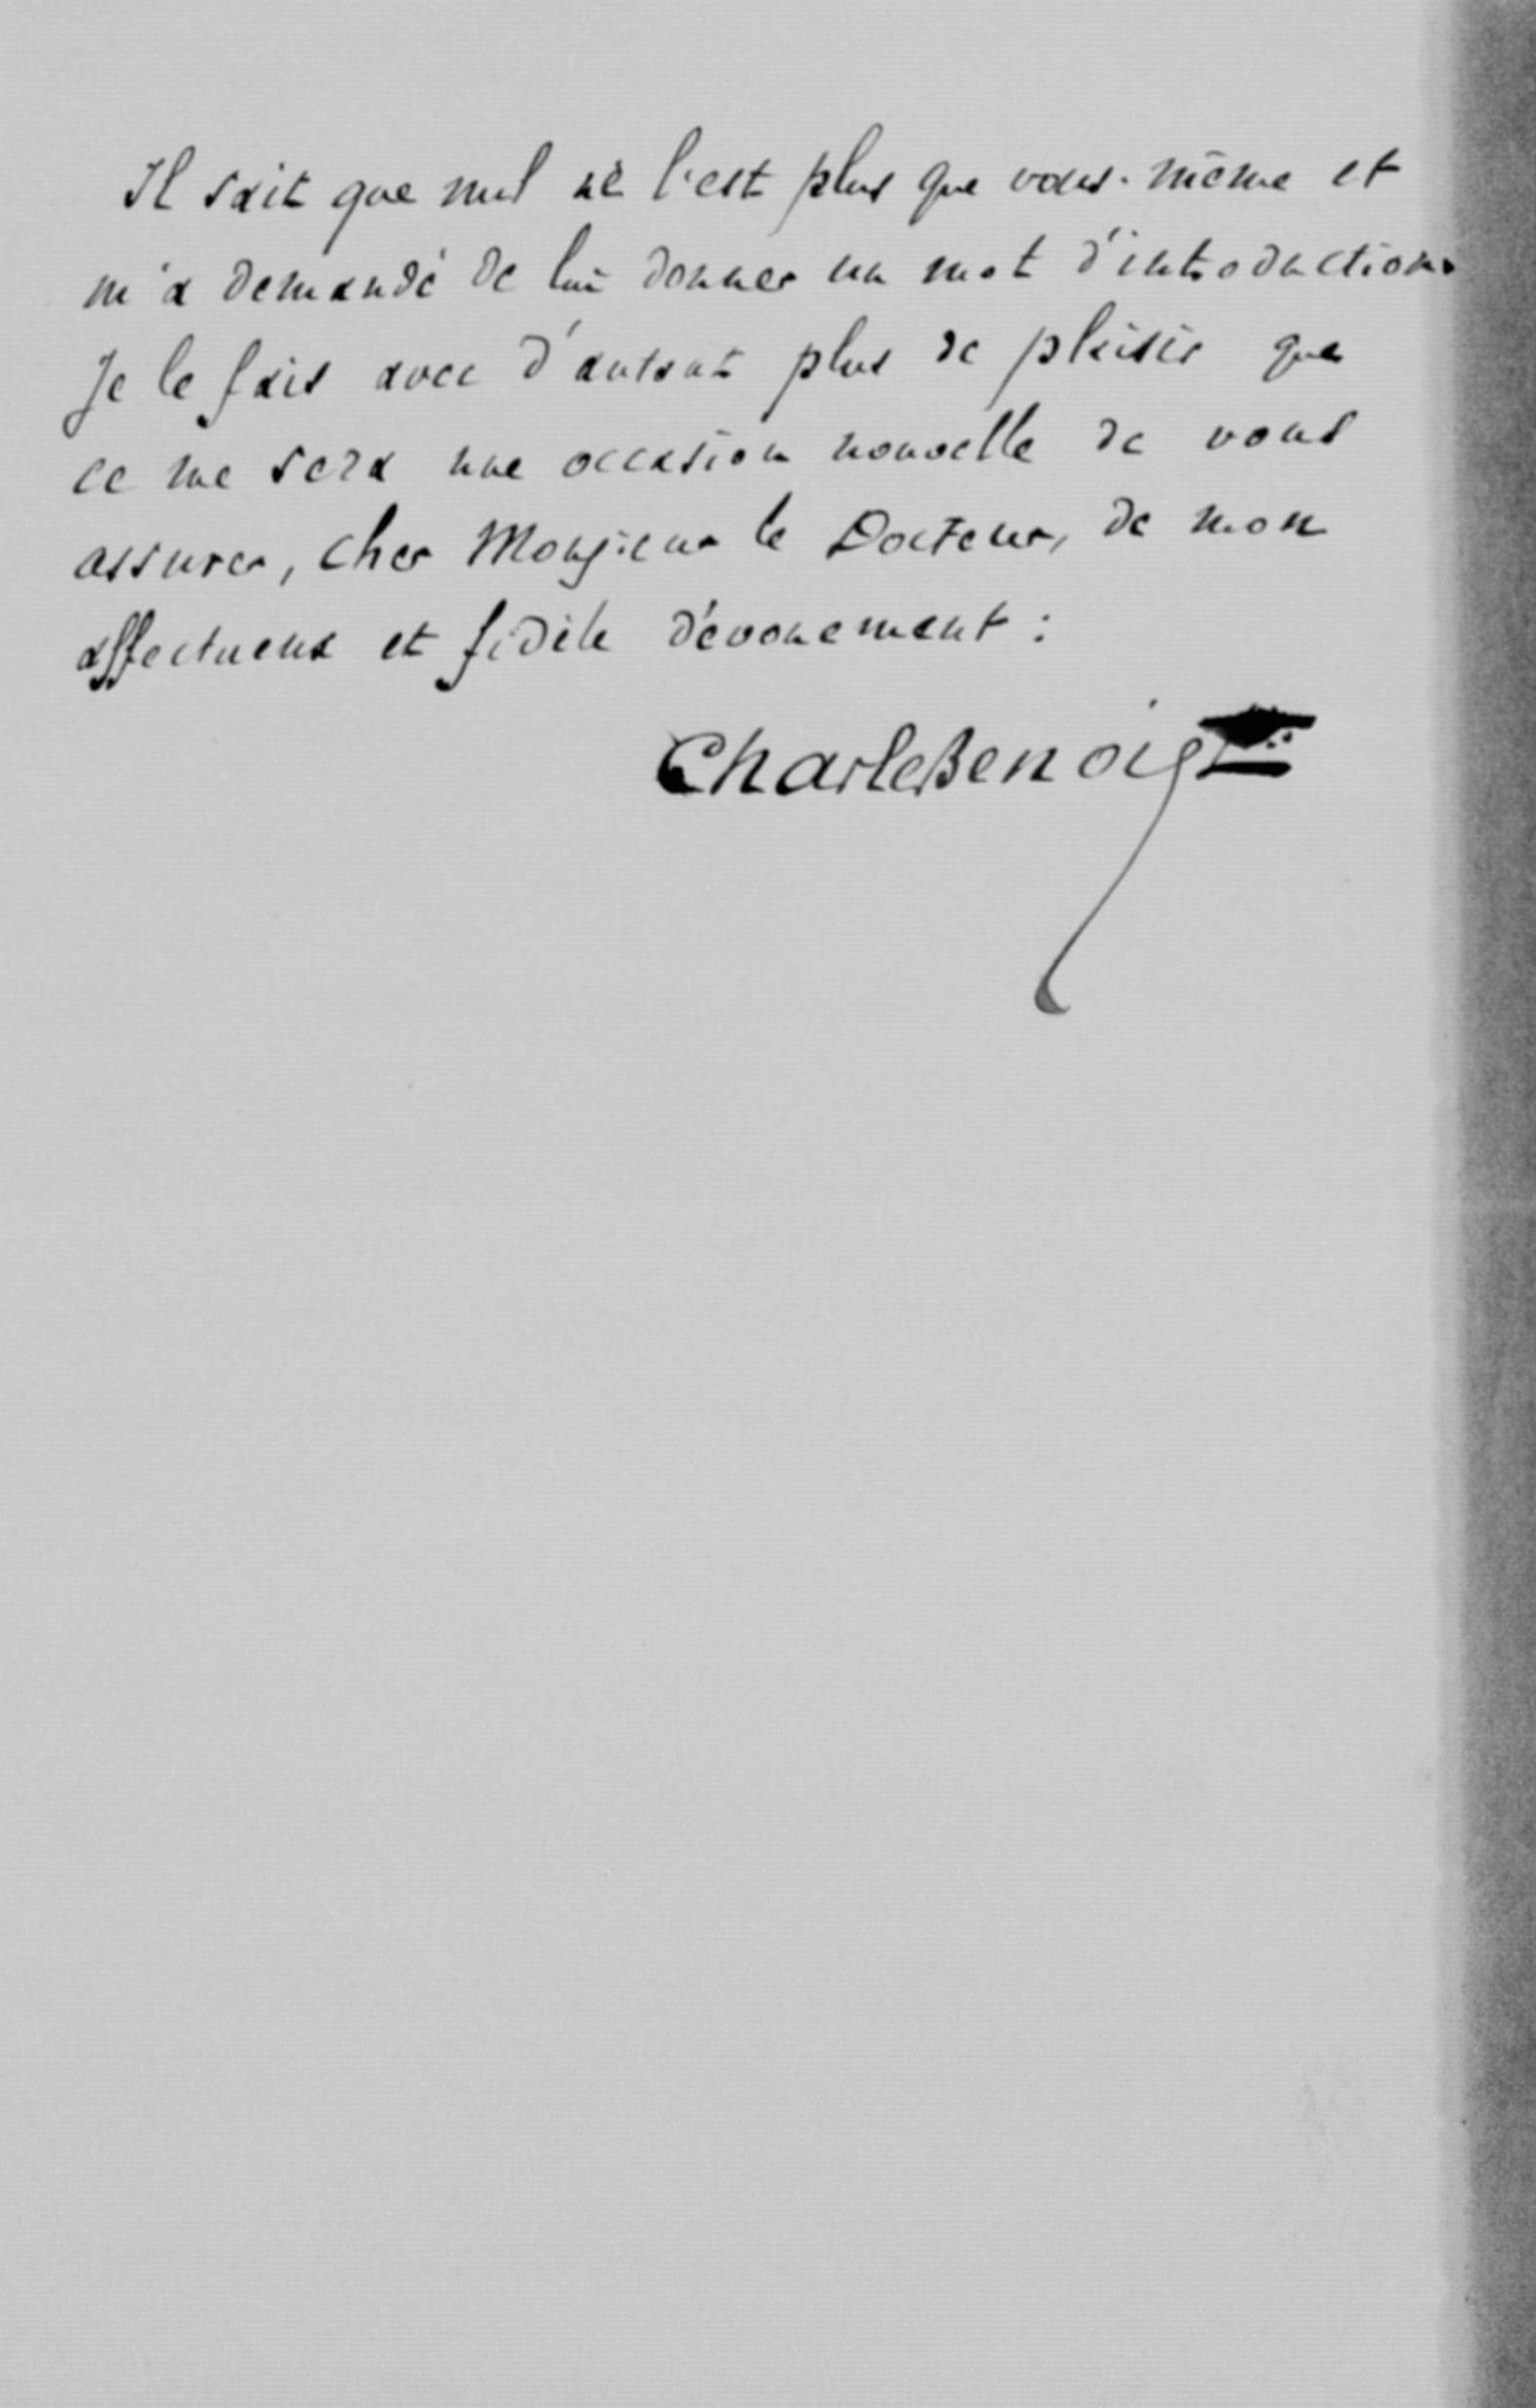 Il sait que nul ne l'est plus que vous-même et
m'a demandé de lui donner un mot d'introduction.
Je le fais avec d'autant plus de plaisir que
ce me sera une occasion nouvelle de vous
assurer, cher Monsieur le Docteur, de mon
affectueux et fidèle dévouement :
Charles Benoist